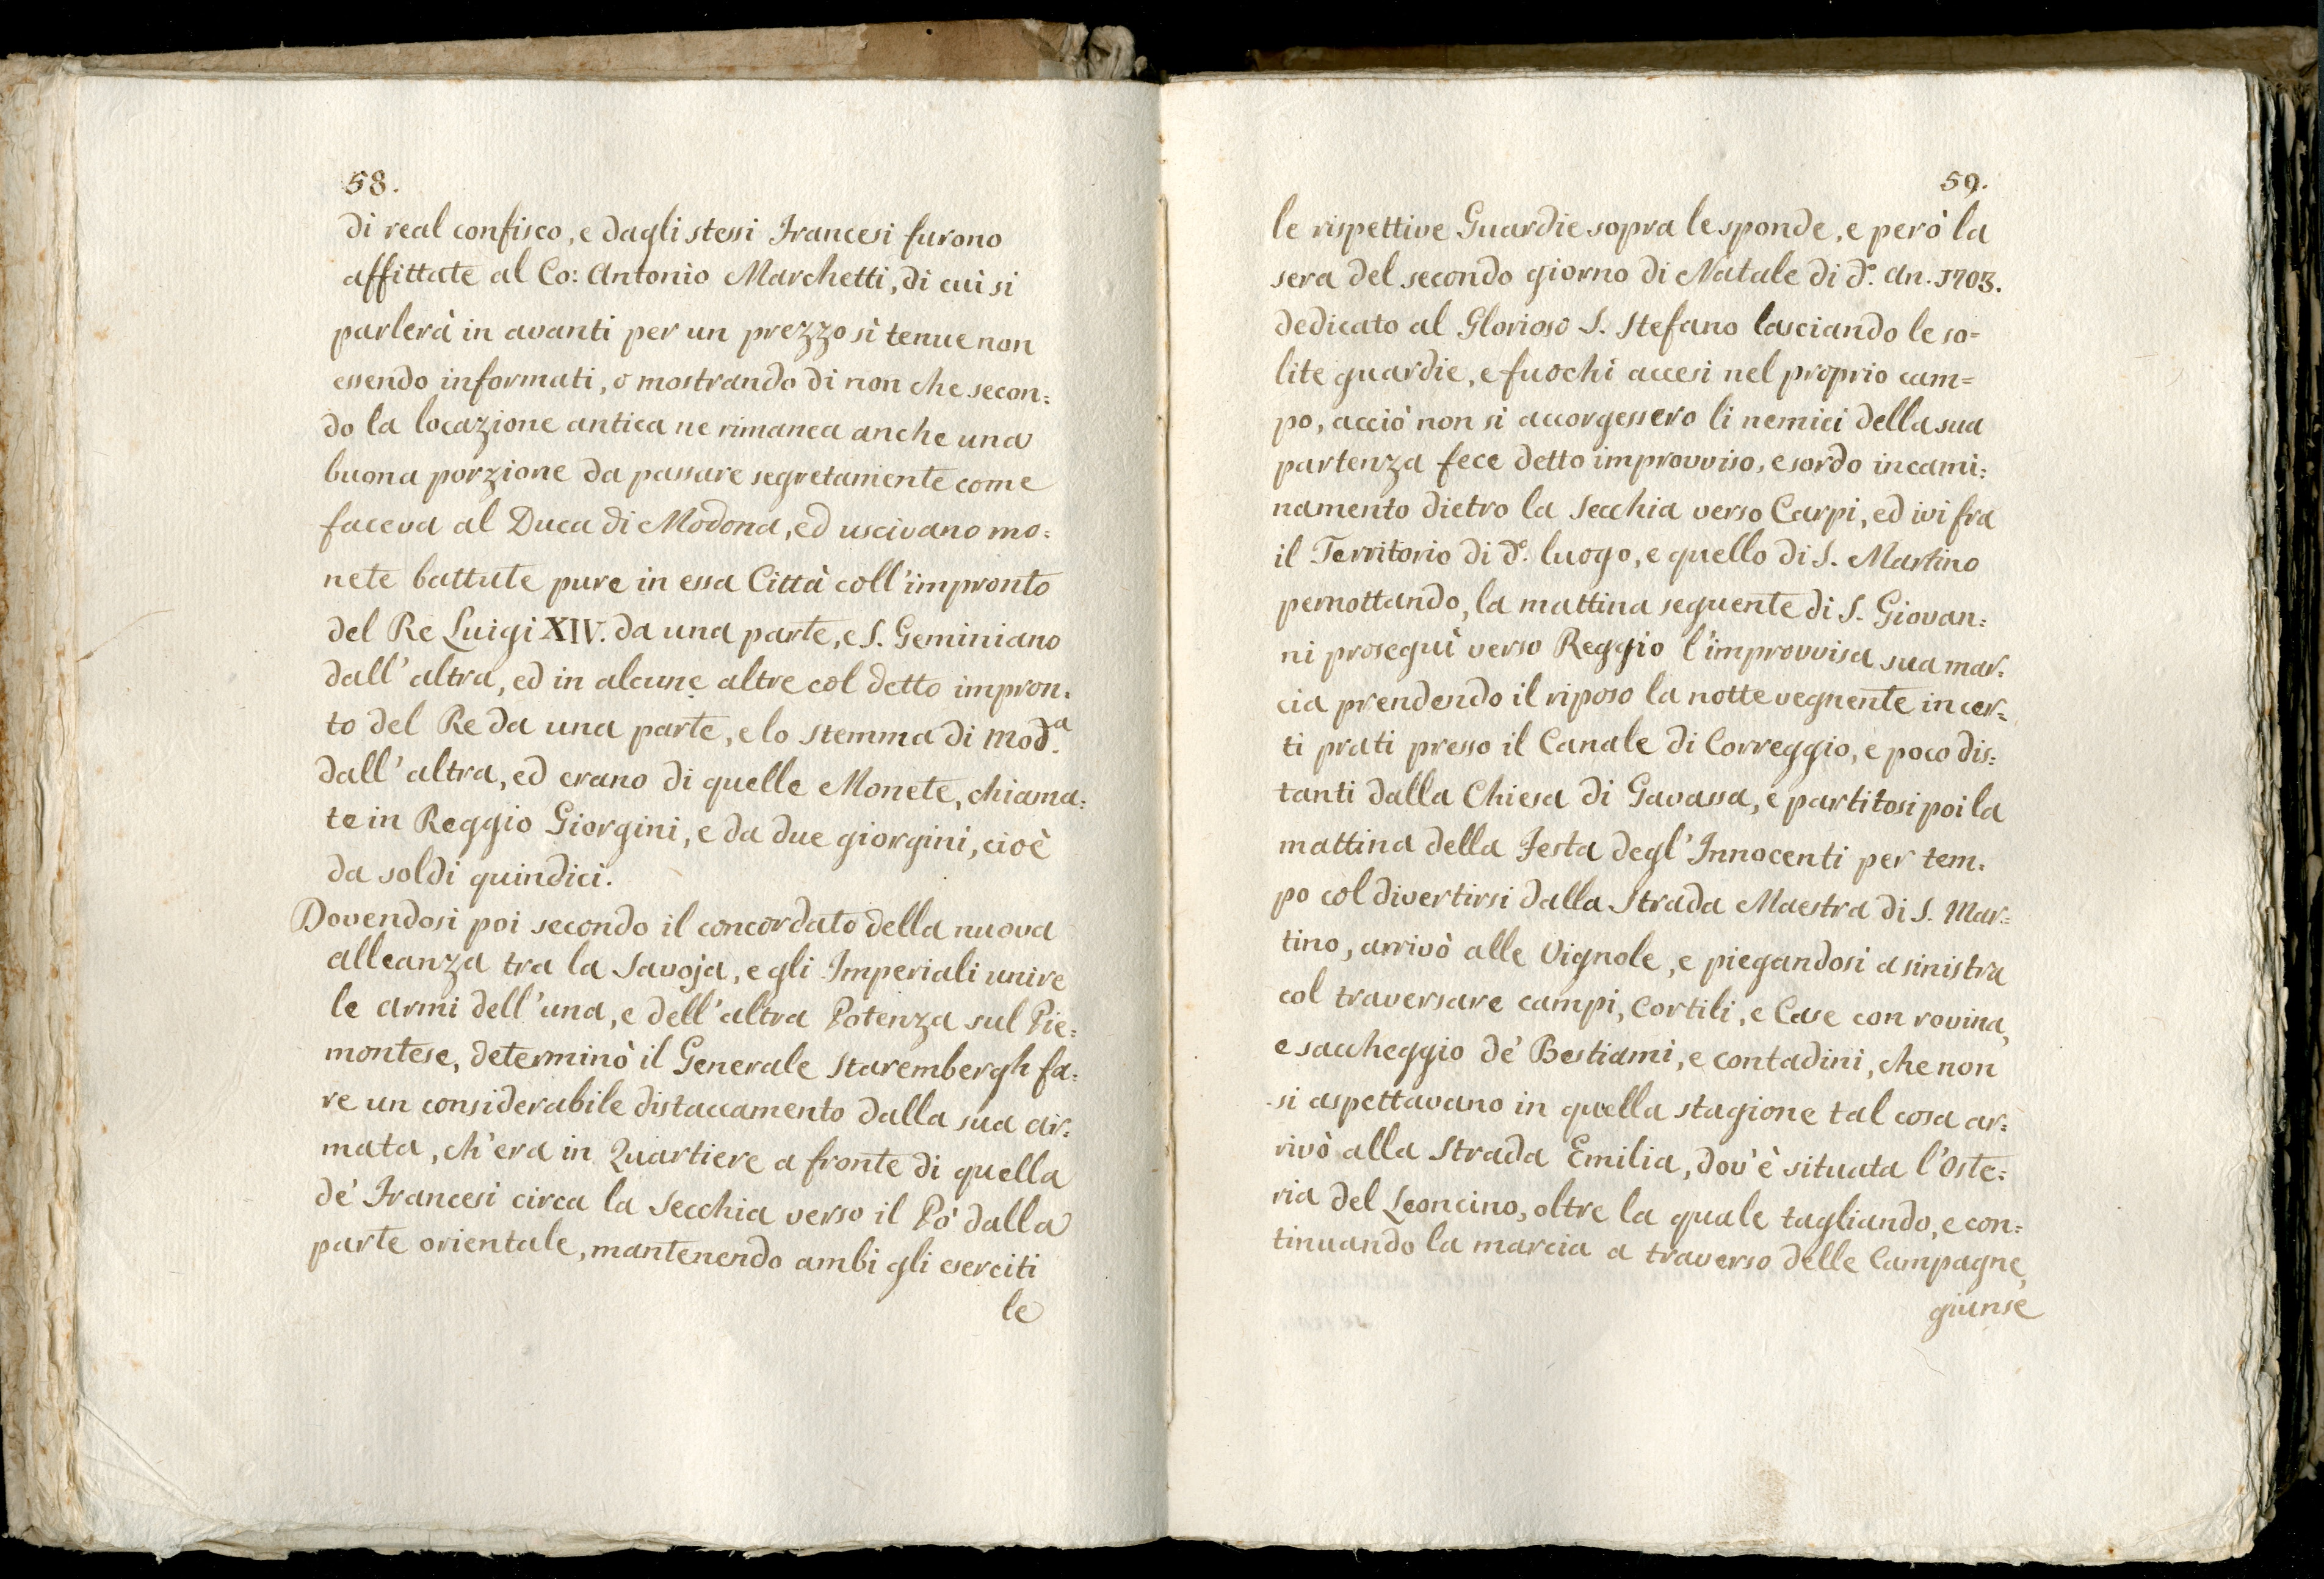 58.
di real confisco, e dagli stessi Francesi furono
affittate al Co: Antonio Marchetti, di cui si
parlerà in avanti per un prezzo sì tenue non
essendo informati, o mostrando di non che secon=
do la locazione antica ne rimanea anche una
buona porzione da passare segretamente come
faceva al Duca di Modona, ed uscivano mo=
nete battute pure in essa Città coll'impronto
del Re Luigi XIV. da una parte, e S. Geminiano
dall'altra, ed in alcune altre col detto impron=
to del Re da una parte, e lo stemma di Mod.ª
dall'altra, ed erano di quelle Monete, chiama=
te in Reggio Giorgini, e da due giorgini, cioè
da soldi quindici.
Dovendosi poi secondo il concordato della nuova
alleanza tra la Savoja, e gli Imperiali unire
le armi dell'una, e dell'altra Potenza sul Pie=
montese, determinò il Generale Starembergh fa=
re un considerabile distaccamento dalla sua ar=
mata, ch'era in Quartiere a fronte di quella
de' Francesi circa la Secchia verso il Pò dalla
parte orientale, mantenendo ambi gli eserciti
le
59.
le rispettive Guardie sopra le sponde, e però la
sera del secondo giorno di Natale di d.º An. 1703.
dedicato al Glorioso S. Stefano lasciando le so=
lite guardie, e fuochi accesi nel proprio cam=
po, acciò non si accorgessero li nemici della sua
partenza fece detto improvviso, e sordo incami=
namento dietro la Secchia verso Carpi, ed ivi fra
il Territorio di d.º luogo, e quello di S. Martino
pernottando, la mattina seguente di S. Giovan=
ni proseguì verso Reggio l'improvvisa sua mar=
cia prendendo il riposo la notte vegnente in cer=
ti prati presso il Canale di Correggio, e poco dis=
tanti dalla Chiesa di Gavassa, e partitosi poi la
mattina della Festa degl'Innocenti per tem=
po col divertirsi dalla Strada Maestra di S. Mar=
tino, arrivò alle Vignole, e piegandosi a sinistra
col traversare campi, Cortili, e Case con rovina,
e saccheggio de' Bestiami, e contadini, che non
si aspettavano in quella stagione tal cosa ar=
rivò alla Strada Emilia, dov'è situata l'Oste=
ria del Leoncino, oltre la quale tagliando, e con=
tinuando la marcia a traverso delle Campagne,
giunse